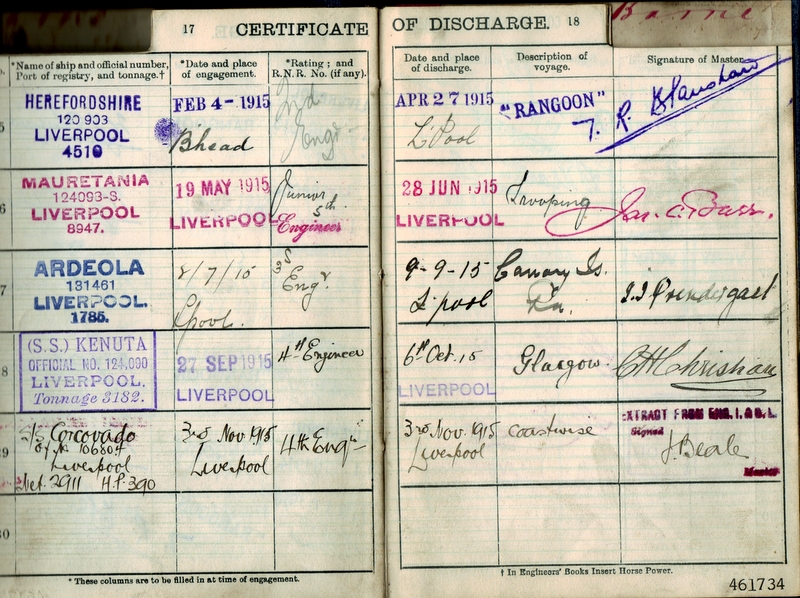 17 CERTIFICATE OF DISCHARGE. 18
*Name of ship and official number,
Port of registry, and tonnage.†
*Date and place
of engagement.
*Rating; and
R.N.R. No. (if any).
Date and place
of discharge.
Description of
voyage.
Signature of Master
HEREFORDSHIRE
120 903
LIVERPOOL
4510
FEB 4-1915
B'head
2nd
Engr
APR 27 1915
L'Pool
"RANGOON"
6
MAURETANIA
124093-S.
LIVERPOOL
8947.
19 MAY 1915
LIVERPOOL
Junior
5th
Engineer
28 JUN 1915
LIVERPOOL
Trooping
Jas. C. Barr.
7
ARDEOLA
131461
LIVERPOOL.
1785.
2/7/15
Lpool.
3rd
Engr
9-9-15
L'pool
Canary Is.
J.J Prendergast
8
(S.S.) KENUTA
OFFICIAL NO. 124,000
LIVERPOOL.
Tonnage 3182.
27 SEP 1915
LIVERPOOL
4th Engineer
6th Oct. 15
LIVERPOOL
Glasgow
9
S/S Corcovado
Off No 106804
Liverpool
Net. 2911 H.P. 390
3rd Nov 1915
Liverpool
4th Engr
3rd Nov. 1915
Liverpool
coastwise
EXTRACT FROM ENG. 1. & O. L.
Signed
J. Beale
Master
* These columns are to be filled in at time of engagement.
† In Engineers' Books Insert Horse Power.
461734